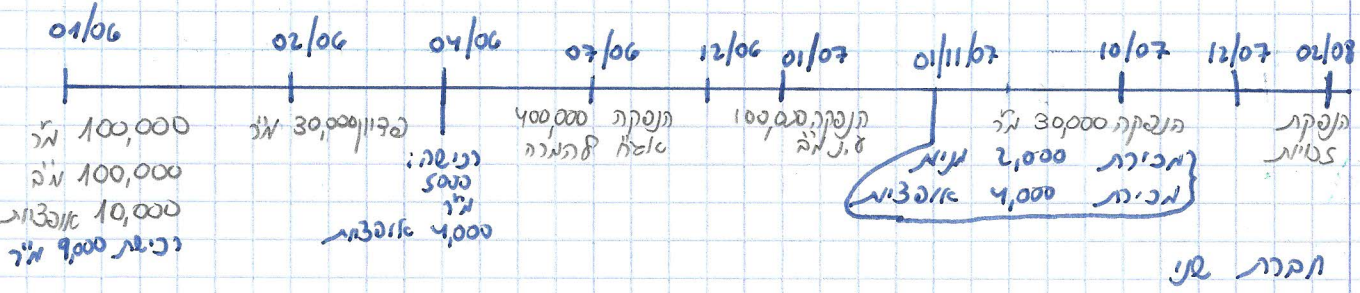 01/06
02/06
04/06
07/06
12/06
01/07
01/11/07
10/07
12/07
02/08
100,000 מ"ר
100,000 מ"ב
10,000 אופציות
רכישת 9,000 מ"ר
פדיון 30,000 מ"ר
רכישה:
5000
מ"ר
4,000 אופציות
הנפקה 400,000
אג"ח להמרה
הנפקה 100,000
ע.נ מ"ב
הנפקה 30,000 מ"ר
מכירת 2,000 מניות
מכירת 4,000 אופציות
הנפקת
זכויות
חברת שני